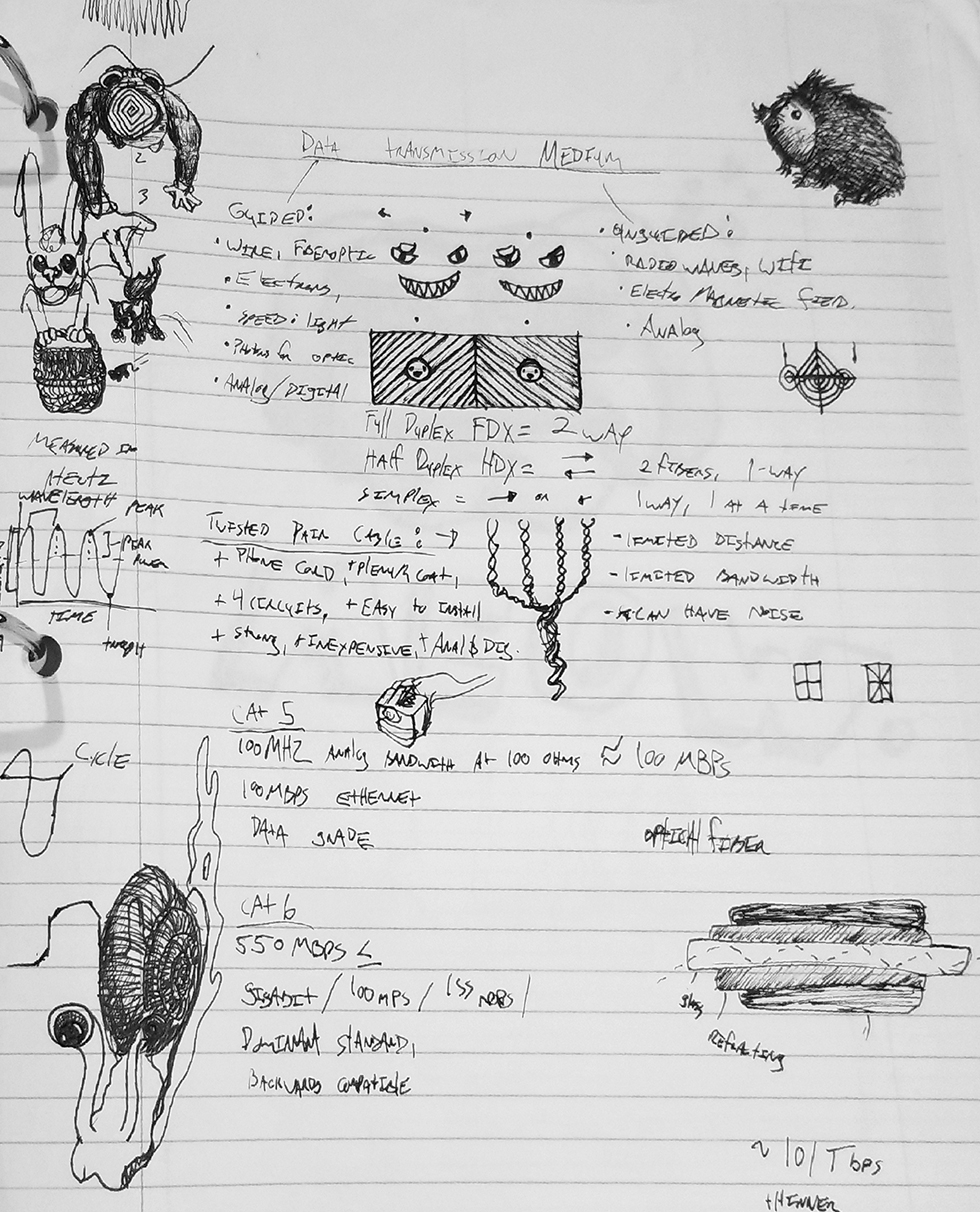 DATA TRANSMISSION MEDIUM
2
3
GUIDED:
• WIRE, FBEROPTIC
• Electrons,
• SPEED: light
• Photons for optic
• ANAlog/DIGITAL
• UNGUIDED:
• RADIO WAVES, WIFI
• Electro MAGNETIC FIELD.
• ANAlog
Full Duplex FDX = 2 WAY
HAlf Duplex HDX =
2 FIBERS, 1-WAY
SIMPLEX = → OR ←
1 WAY, 1 At A tIME
MEASURED IN
HERTZ
WAVELENGTH
PEAK
PEAK
POWER
TIME
TWISTED PAIR CABLE: →
+ PHONE CORD, + PLENUM COAT,
+ 4 CIRCUITS, + EASY to INSTALL
+ Strong, + INEXPENSIVE, + ANAl & DIG.
- LIMITED DISTANCE
- LIMITED BANDWIDTH
- CAN HAVE NOISE
CAt 5
100 MHZ ANALOG BANDWITH At 100 OHMS ≈ 100 MBPS
100 MBPS ETHERNET
DAtA GRADE
CYCLE
OPTICAL FIBER
CAt 6
550 MBPS <
GIGABIT / 100 MPS / 155 MBPS /
DOMINANT STANDARD,
BACKWARDS COMPATIBLE
glass
REFRACTING
~ 101 Tbps
tHINNER